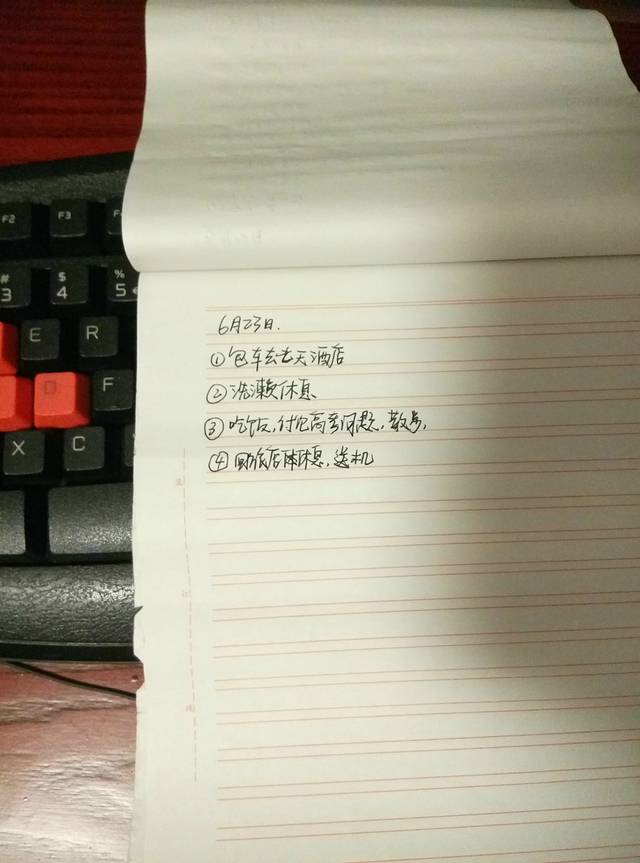 F2
F3
# 3
$ 4
% 5
E
R
D
F
X
C
6月23日.
①包车去七天酒店
②洗漱休息
③吃饭,讨论高考问题,散步,
④回饭店休息,送机